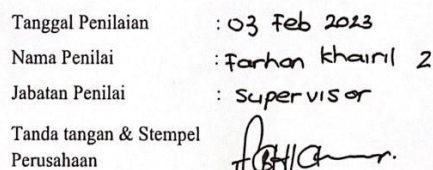 Tanggal Penilaian : 03 Feb 2023
Nama Penilai : Farhan khairil Z
Jabatan Penilai : Supervisor
Tanda tangan & Stempel
Perusahaan